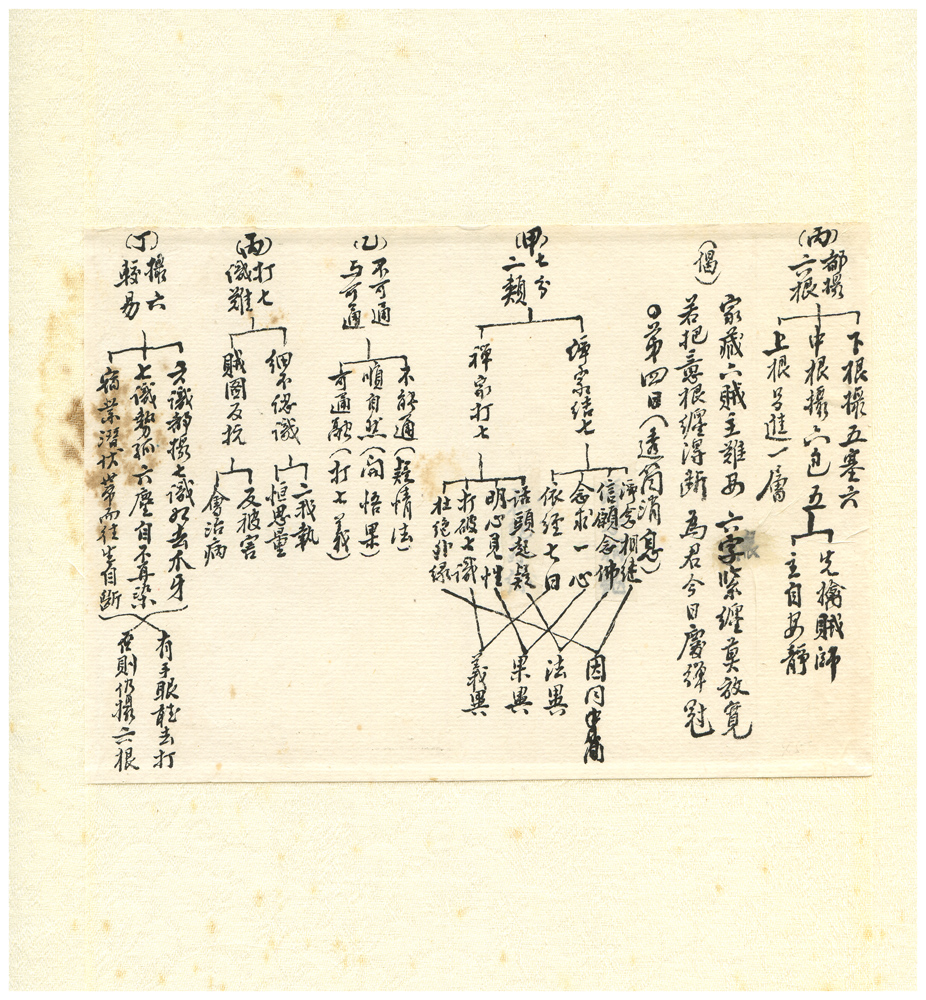 (丙)都攝
六根
下根攝五塞六
中根攝六包五
先擒賊師
主自安靜
上根另進一層
(偈)
家藏六賊主難安 六字緊纏莫放寬
若把意根纏得斷 為君今日慶彈冠
○第四日(透箇消息)
(甲)七分
二類
淨家結七
淨念相繼
信願念佛
念求一心
依經七日
禪家打七
話頭起疑
明心見性
打破七識
杜絕外緣
因同
法異
果異
義異
(乙)不可通
与可通
未能通(疑情法)
順自然(開悟果)
可通融(打七義)
(丙)打七
儀難
細不認識
二我執
恒思量
賊固反抗
反被害
會治病
(丁)攝六
較易
六識都攝七識如去爪牙
七識勢孤六塵自不再染
宿業潛伏帶而往生自斷
有手眼能去打
否則仍攝六根